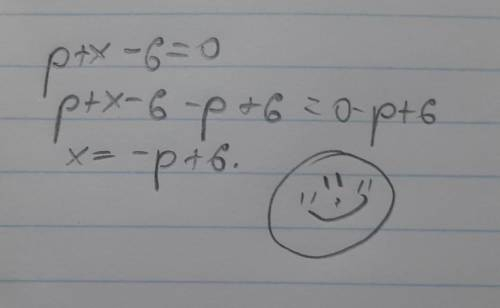 p+x-6=0
p+x-6-p+6=0-p+6
x=-p+6.